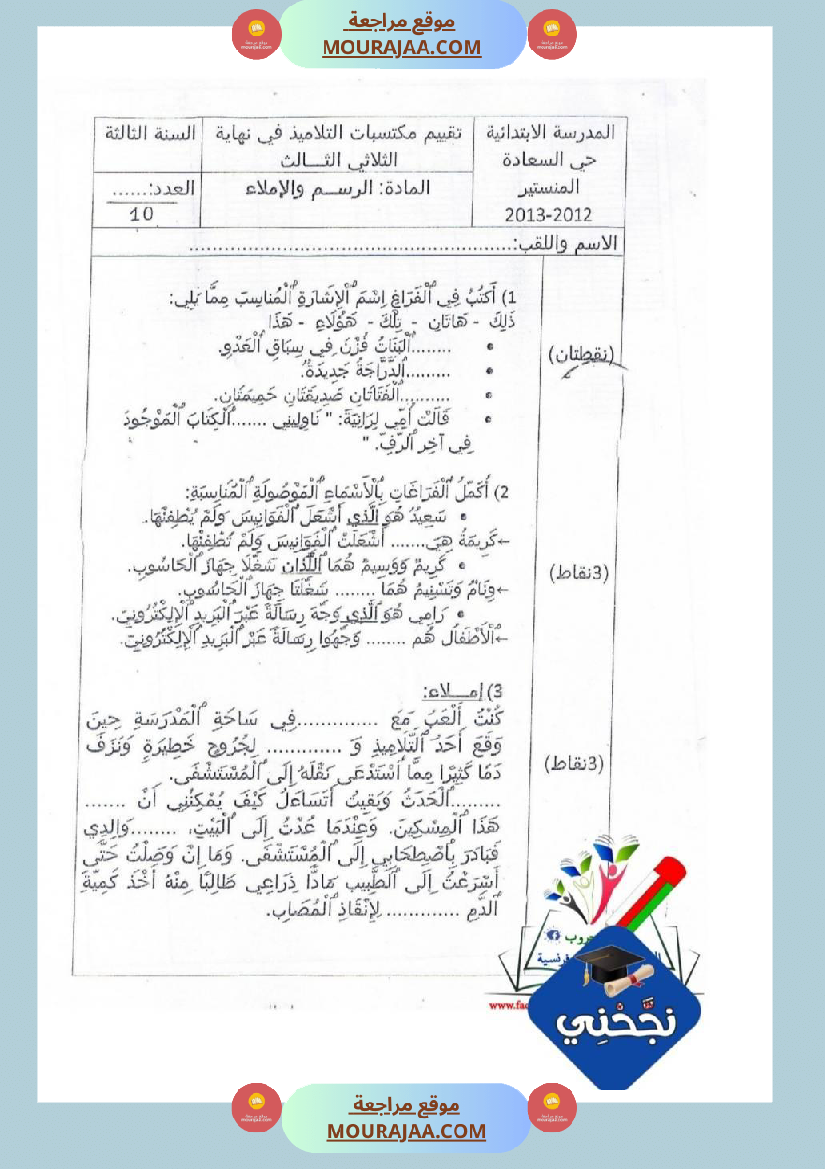 موقع مراجعة
MOURAJAA.COM
المدرسة الابتدائية
حي السعادة
المنستير
2013-2012
تقييم مكتسبات التلاميذ في نهاية
الثلاثي الثـــالث
المادة: الرســم والإملاء
السنة الثالثة
العدد:......
10
الاسم واللقب:........................................................
(نقطتان)
1) أَكْتُبُ فِي ٱلْفَرَاغِ اِسْمَ ٱلْإِشَارَةِ ٱلْمُنَاسِبَ مِمَّا يَلِي:
ذَلِكَ - هَاتَانِ - تِلْكَ - هَؤُلَاءِ - هَذَا
• ........ٱلْبَنَاتُ فُزْنَ فِي سِبَاقِ ٱلْعَدْوِ.
• .........ٱلدَّرَّاجَةُ جَدِيدَةٌ.
• ..........ٱلْفَتَاتَانِ صَدِيقَتَانِ حَمِيمَتَانِ.
• قَالَتْ أُمِّي لِرَانِيَةَ: " نَاوِلِينِي .......ٱلْكِتَابَ ٱلْمَوْجُودَ
فِي آخِرِ ٱلرَّفِّ. "
(3نقاط)
2) أُكَمِّلُ ٱلْفَرَاغَاتِ بِٱلْأَسْمَاءِ ٱلْمَوْصُولَةِ ٱلْمُنَاسِبَةِ:
• سَعِيدُ هُوَ ٱلَّذِي أَشْعَلَ ٱلْفَوَانِيسَ وَلَمْ يُطْفِئْهَا.
←كَرِيمَةُ هِيَ....... أَشْعَلَتْ ٱلْفَوَانِيسَ وَلَمْ تُطْفِئْهَا.
• كَرِيمٌ وَوَسِيمٌ هُمَا ٱللَّذَانِ شَغَّلَا جِهَازَ ٱلْحَاسُوبِ.
←وِئَامُ وَتَسْنِيمُ هُمَا ........ شَغَّلَتَا جِهَازَ ٱلْحَاسُوبِ.
• رَامِي هُوَ ٱلَّذِي وَجَّهَ رِسَالَةً عَبْرَ ٱلْبَرِيدِ ٱلْإِلِكْتُرُونِيِّ.
←ٱلْأَطْفَالُ هُم ........ وَجَّهُوا رِسَالَةً عَبْرَ ٱلْبَرِيدِ ٱلْإِلِكْتُرُونِيِّ.
(3نقاط)
3) إمـــلاء:
كُنْتُ أَلْعَبُ مَعَ ..............فِي سَاحَةِ ٱلْمَدْرَسَةِ حِينَ
وَقَعَ أَحَدُ ٱلتَّلَامِيذِ وَ ............. لِجُرُوحٍ خَطِيرَةٍ وَنَزَفَ
دَمًا كَثِيرًا مِمَّا ٱسْتَدْعَى نَقْلَهُ إِلَى ٱلْمُسْتَشْفَى.
.........ٱلْحَدَثُ وَبَقِيتُ أَتَسَاءَلُ كَيْفَ يُمْكِنُنِي أَنْ .......
هَذَا ٱلْمِسْكِينَ. وَعِنْدَمَا عُدْتُ إِلَى ٱلْبَيْتِ، ........وَالِدِي
فَبَادَرَ بِٱصْطِحَابِي إِلَى ٱلْمُسْتَشْفَى. وَمَا إِنْ وَصَلْتُ حَتَّى
أَسْرَعْتُ إِلَى ٱلطَّبِيبِ مَادًّا ذِرَاعِي طَالِبًا مِنْهُ أَخْذَ كَمِيَّةَ
ٱلدَّمِ ............. لِإِنْقَاذِ ٱلْمُصَابِ.
نجّحْنِي
موقع مراجعة
MOURAJAA.COM